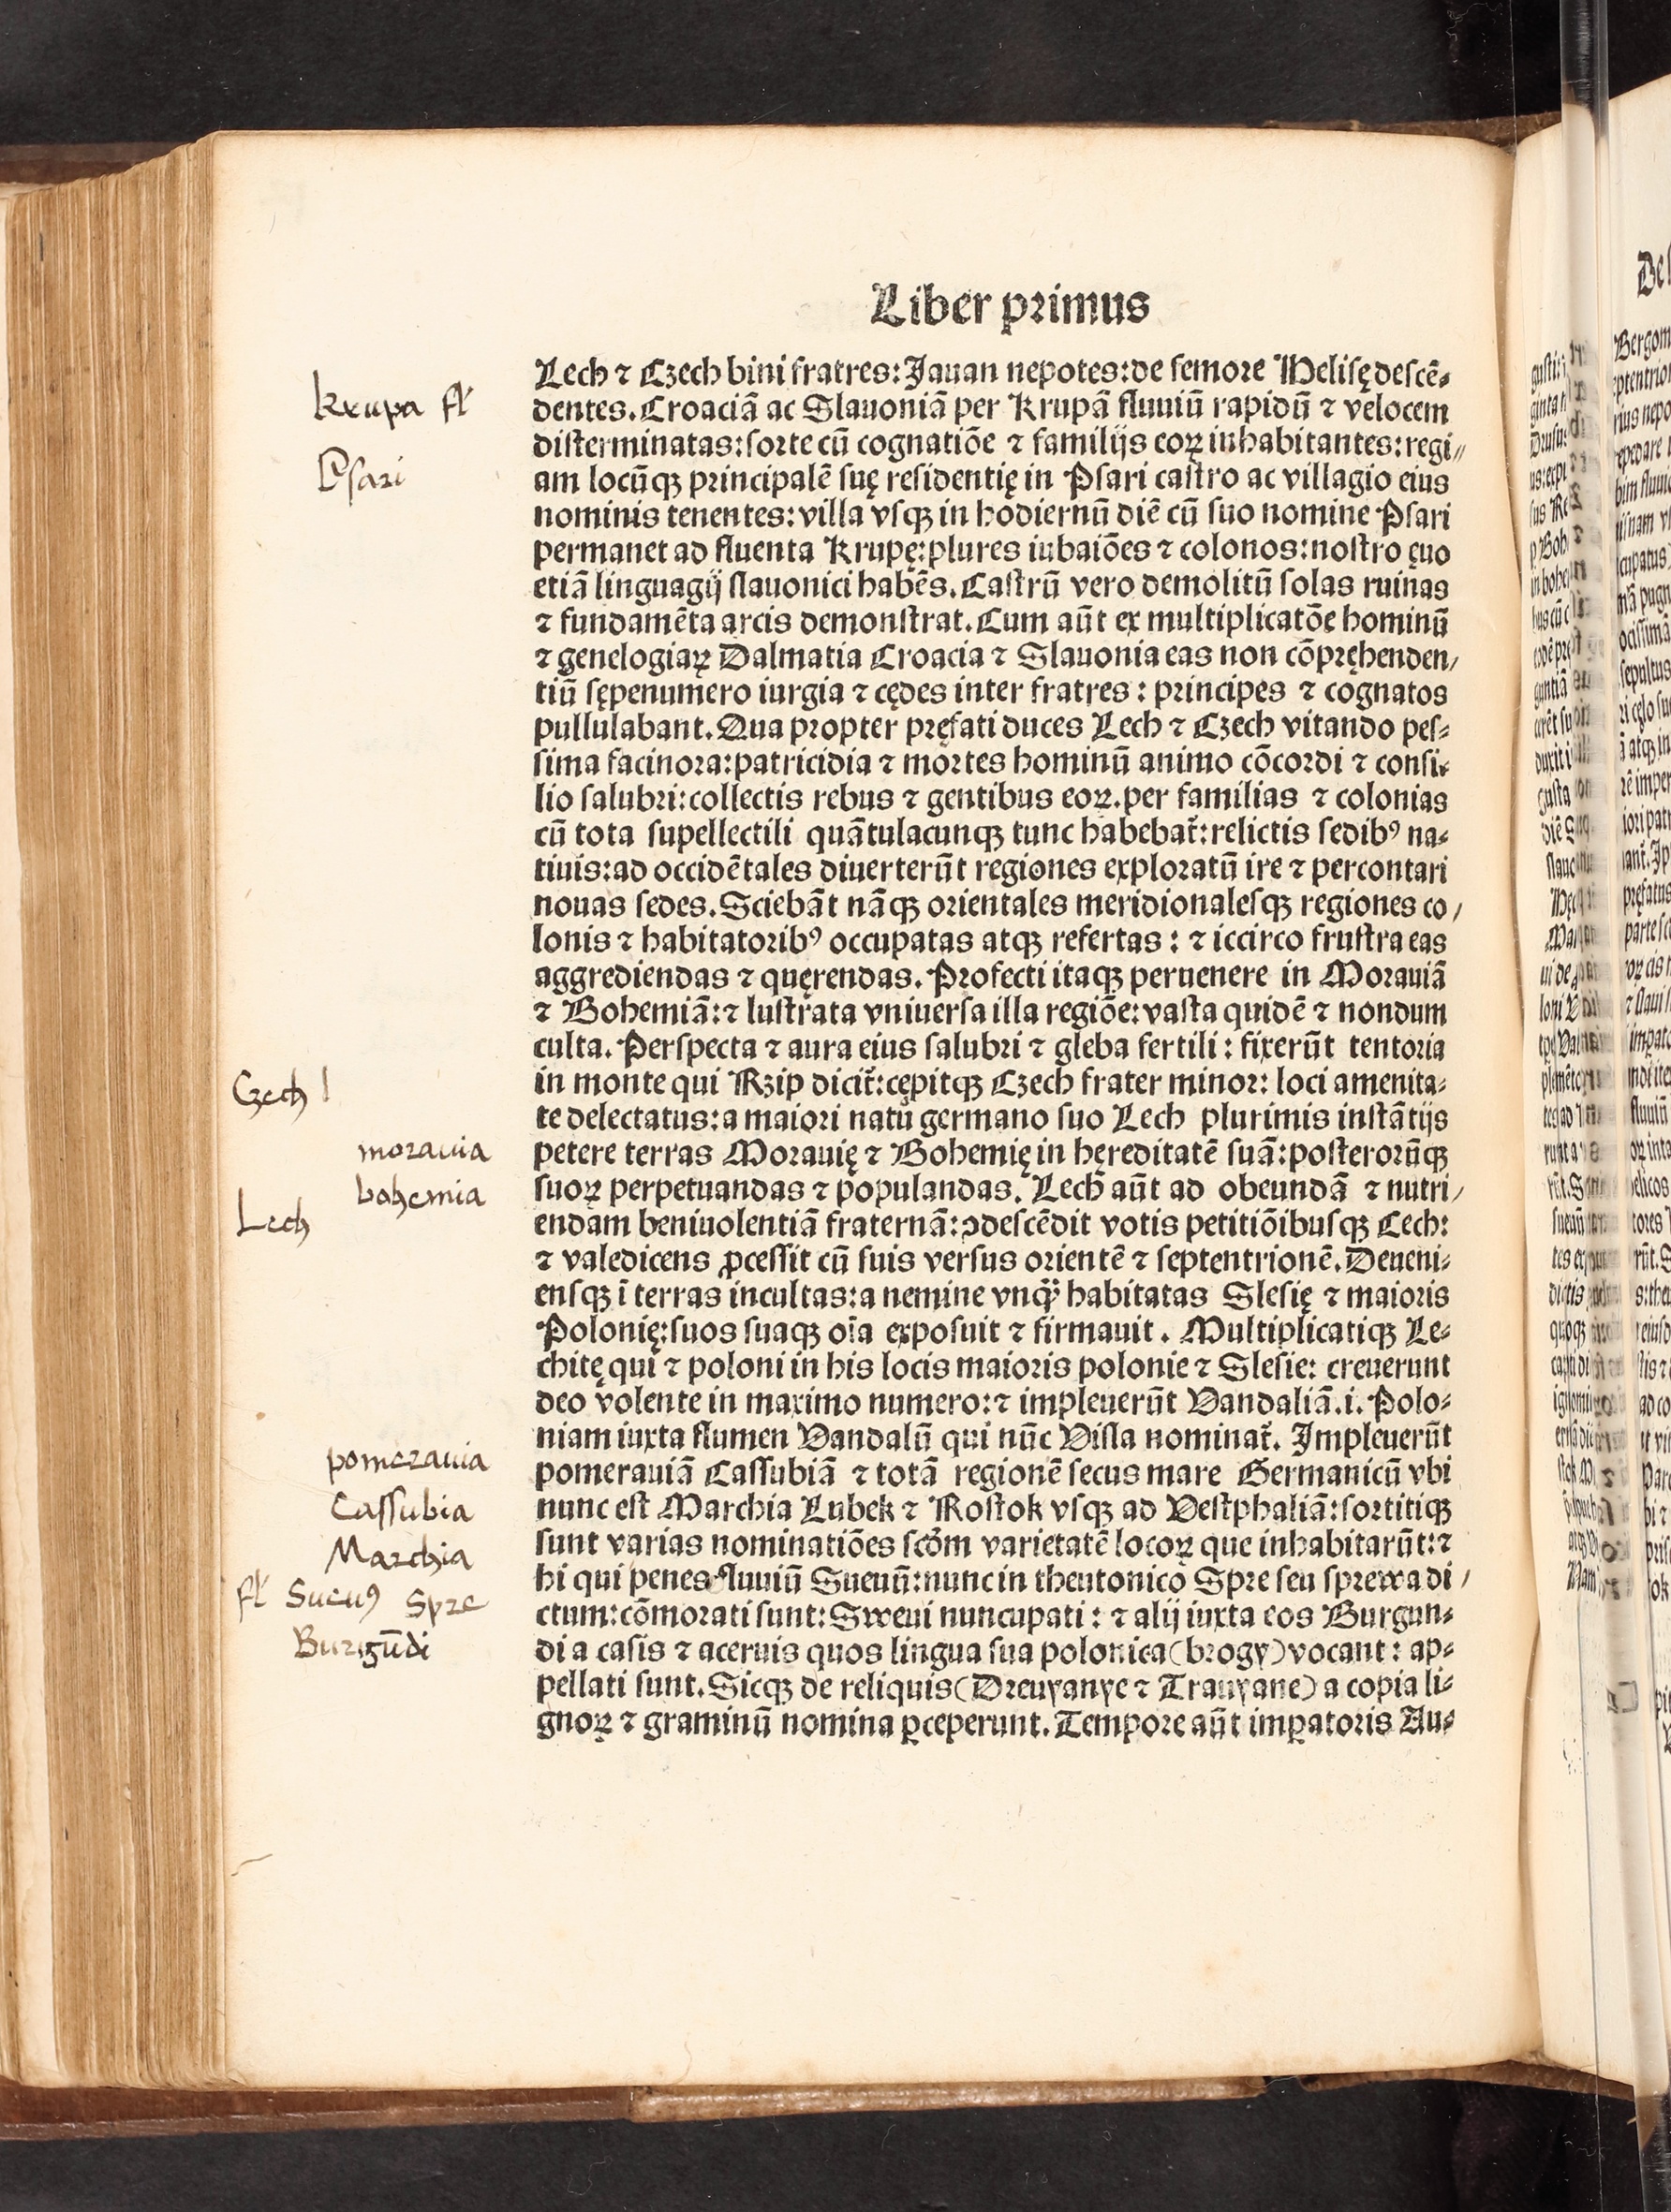 Liber primus
Lech ⁊ Czech bini fratres: Jauan nepotes: de femore Helisę descē-
dentes. Croaciā ac Slauoniā per Krupā fluuiū rapidū ⁊ velocem
disterminatas: sorte cū cognatiōe ⁊ familijs eoꝝ inhabitantes: regi-
am locūqꝫ principalē suę residentię in Psari castro ac villagio eius
nominis tenentes: villa vsqꝫ in hodiernū diē cū suo nomine Psari
permanet ad fluenta Krupę: plures iubaiōes ⁊ colonos: nostro ęuo
etiā linguagij slauonici habēs. Castrū vero demolitū solas ruinas
⁊ fundamēta arcis demonstrat. Cum aūt ex multiplicatōe hominū
⁊ genelogiaꝝ Dalmatia Croacia ⁊ Slauonia eas non cōpręhenden-
tiū sępenumero iurgia ⁊ cędes inter fratres: principes ⁊ cognatos
pullulabant. Qua propter pręfati duces Lech ⁊ Czech vitando pes-
sima facinora: patricidia ⁊ mortes hominū animo cōcordi ⁊ consi-
lio salubri: collectis rebus ⁊ gentibus eoꝝ. per familias ⁊ colonias
cū tota supellectili quātulacunqꝫ tunc habebat̄: relictis sedibꝰ na-
tiuis: ad occidētales diuerterūt regiones exploratū ire ⁊ percontari
nouas sedes. Sciebāt nāqꝫ orientales meridionalesqꝫ regiones co-
lonis ⁊ habitatoribꝰ occupatas atqꝫ refertas: ⁊ iccirco frustra eas
aggrediendas ⁊ quęrendas. Profecti itaqꝫ peruenere in Morauiā
⁊ Bohemiā: ⁊ lustrata vniuersa illa regiōe: vasta quidē ⁊ nondum
culta. Perspecta ⁊ aura eius salubri ⁊ gleba fertili: fixerūt tentoria
in monte qui Rzip dicit̄: cępitqꝫ Czech frater minor: loci amenita-
te delectatus: a maiori natu germano suo Lech plurimis instātijs
petere terras Morauię ⁊ Bohemię in hęreditatē suā: posterorūqꝫ
suoꝝ perpetuandas ⁊ populandas. Lech aūt ad obeundā ⁊ nutri-
endam beniuolentiā fraternā: ꝯdescēdit votis petitiōibusqꝫ Cech:
⁊ valedicens ꝓcessit cū suis versus orientē ⁊ septentrionē. Deueni-
ensqꝫ ī terras incultas: a nemine vnqꝫ̈ habitatas Slesię ⁊ maioris
Polonię: suos suaqꝫ oīa exposuit ⁊ firmauit. Multiplicatiqꝫ Le-
chitę qui ⁊ poloni in his locis maioris polonie ⁊ Slesie: creuerunt
deo volente in maximo numero: ⁊ impleuerūt Vandaliā .i. Polo-
niam iuxta flumen Vandalū qui nūc Visla nominat̄. Impleuerūt
pomerauiā Cassubiā ⁊ totā regionē secus mare Germanicū vbi
nunc est Marchia Lubek ⁊ Rostok vsqꝫ ad Vestphaliā: sortitiqꝫ
sunt varias nominatiōes scd̄m varietatē locoꝝ que inhabitarūt: ⁊
hi qui penes fluuiū Sueuū: nunc in theutonico Spre seu sprewa di-
ctum: cōmorati sunt: Sweui nuncupati: ⁊ alij iuxta eos Burgun-
di a casis ⁊ aceruis quos lingua sua polonica (brogy) vocant: ap-
pellati sunt. Sicqꝫ de reliquis (Dreuyanye ⁊ Trauyane) a copia li-
gnoꝝ ⁊ graminū nomina ꝑceperunt. Tempore aūt imꝑatoris Au-
krupa fl'
Psari
Czech
morauia
bohemia
Lech
pomerauia
Cassubia
Marchia
fl' Sueuꝰ Spre
Burgūdi